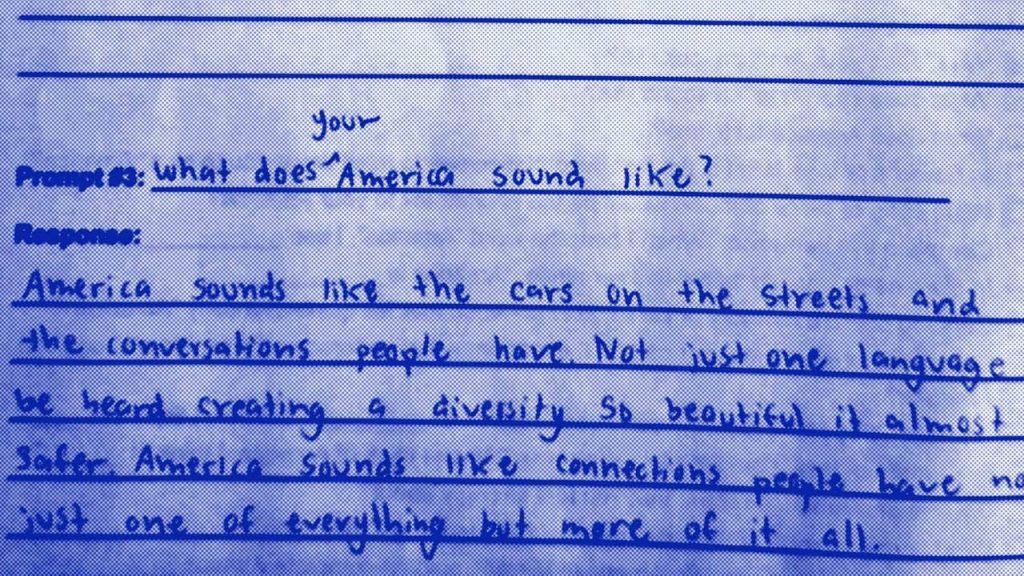 your
Prompt #3: What does ^ America sound like?
Response:
America sounds like the cars on the streets and
the conversations people have. Not just one language
be heard creating a diversity so beautiful it almost
safer. America sounds like connections people have no
just one of everything but more of it all.